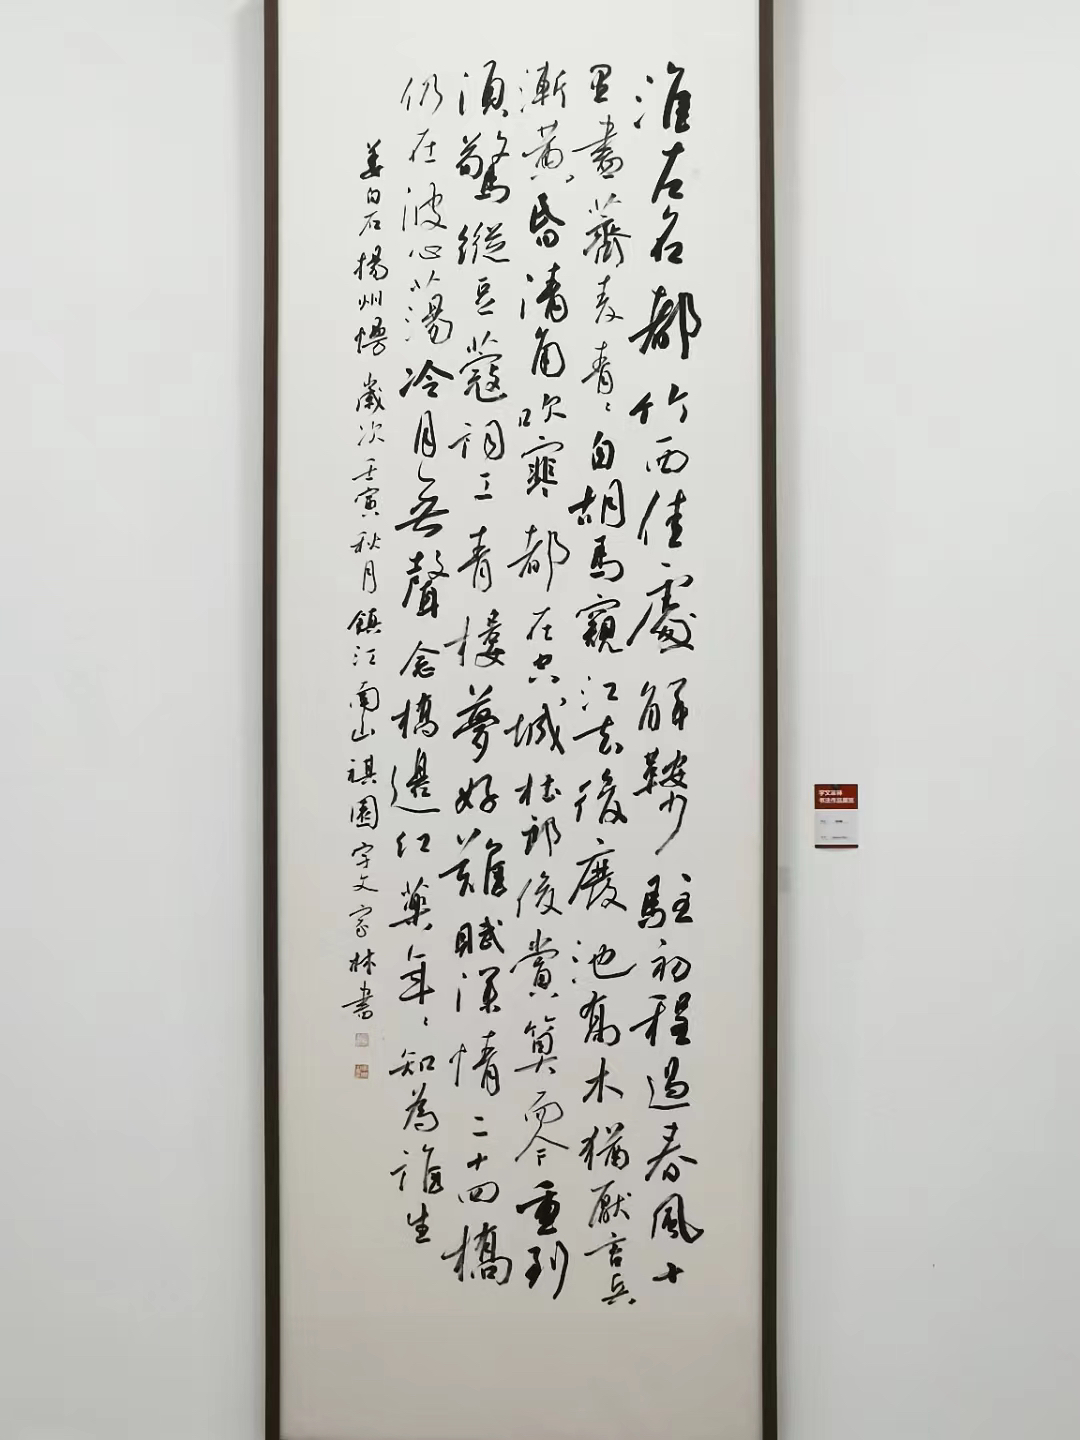 淮左名都竹西佳處解鞍少駐初程過春風十
里盡薺麦青〻自胡馬窺江去後廢池喬木猶厭言兵
漸黃昏清角吹寒都在空城杜郎俊賞算而今重到
須驚縱豆蔻詞工青樓夢好難賦深情二十四橋
仍在波心蕩冷月無聲念橋邊紅藥年〻知為誰生
姜白石揚州慢 歲次壬寅秋月鎮江南山祺園宇文家林書
宇文家林
书法作品展览